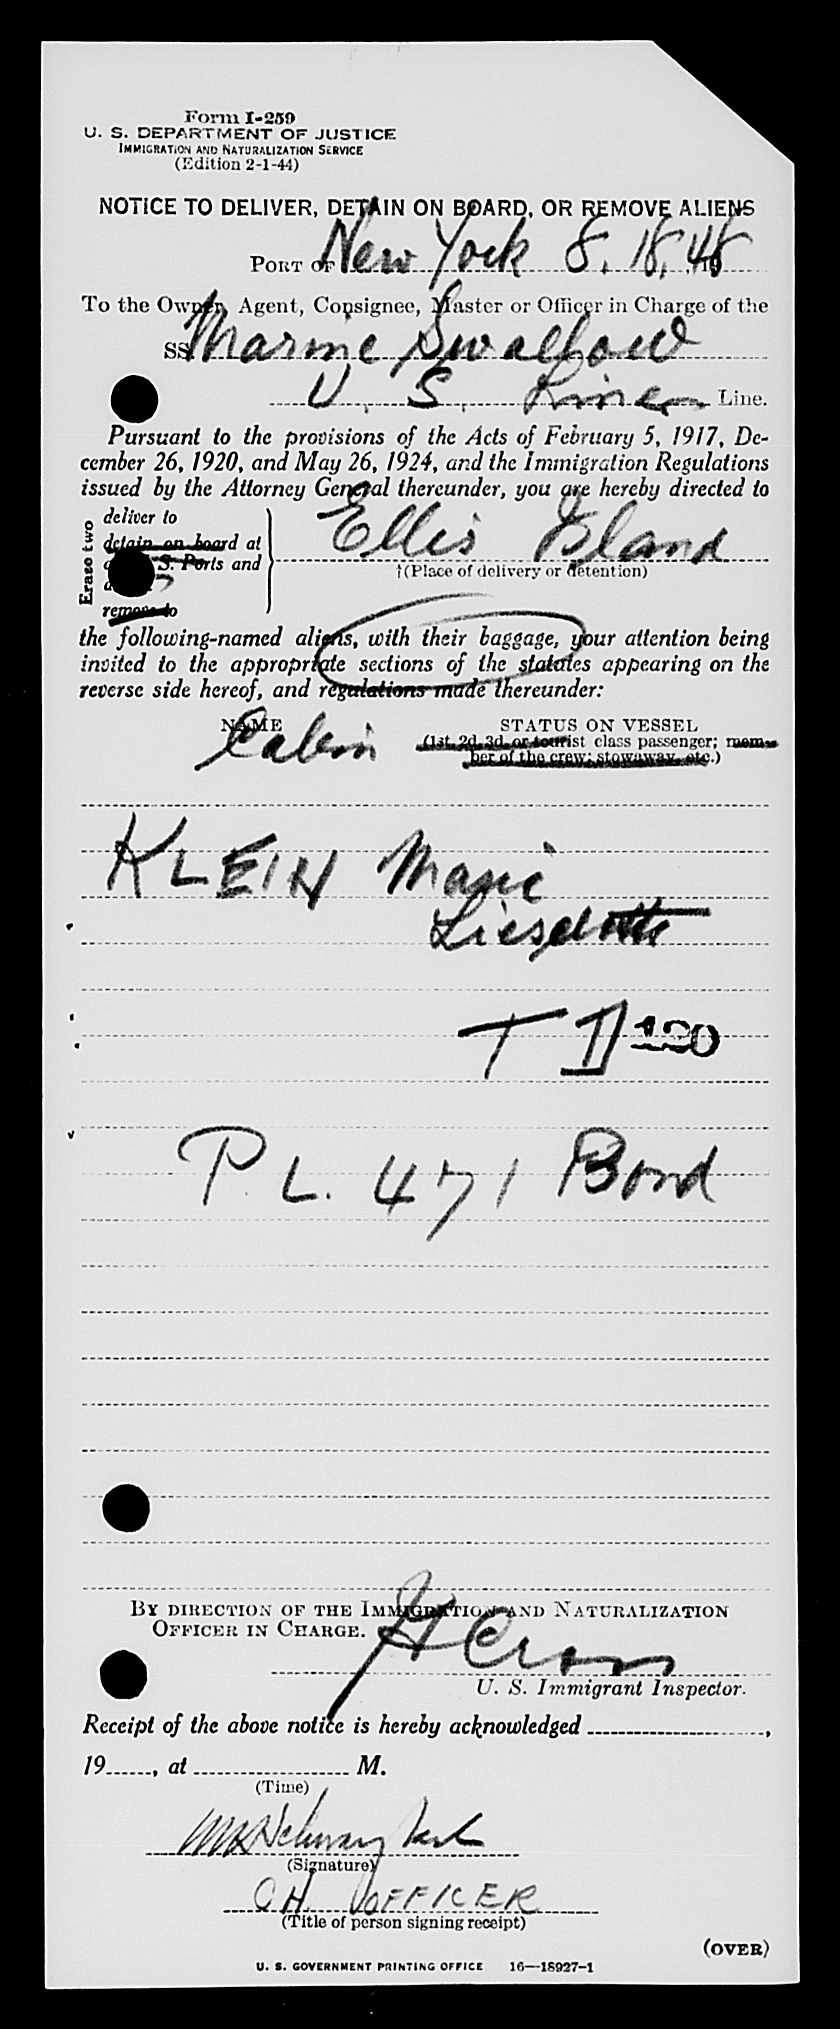 Form I-259
U. S. DEPARTMENT OF JUSTICE
IMMIGRATION AND NATURALIZATION SERVICE
(Edition 2-1-44)
NOTICE TO DELIVER, DETAIN ON BOARD, OR REMOVE ALIENS
PORT OF New York 8. 18, 1948
To the Owner, Agent, Consignee, Master or Officer in Charge of the
SS Marine Swallow
U. S. Lines Line.
Pursuant to the provisions of the Acts of February 5, 1917, De-
cember 26, 1920, and May 26, 1924, and the Immigration Regulations
issued by the Attorney General thereunder, you are hereby directed to
Erase two
deliver to
detain on board at
S. Ports and
remove to
Ellis Island
†(Place of delivery or detention)
the following-named aliens, with their baggage, your attention being
invited to the appropriate sections of the statutes appearing on the
reverse side hereof, and regulations made thereunder:
NAME STATUS ON VESSEL
Cabin (1st, 2d, 3d, or tourist class passenger; mem-
ber of the crew; stowaway, etc.)
KLEIN Marie
Lieselotte
T II 120
P L. 471 Bond
BY DIRECTION OF THE IMMIGRATION AND NATURALIZATION
OFFICER IN CHARGE.
U. S. Immigrant Inspector.
Receipt of the above notice is hereby acknowledged ,
19 , at M.
(Time)
(Signature)
CH OFFICER
(Title of person signing receipt)
(OVER)
U. S. GOVERNMENT PRINTING OFFICE 16—18927-1